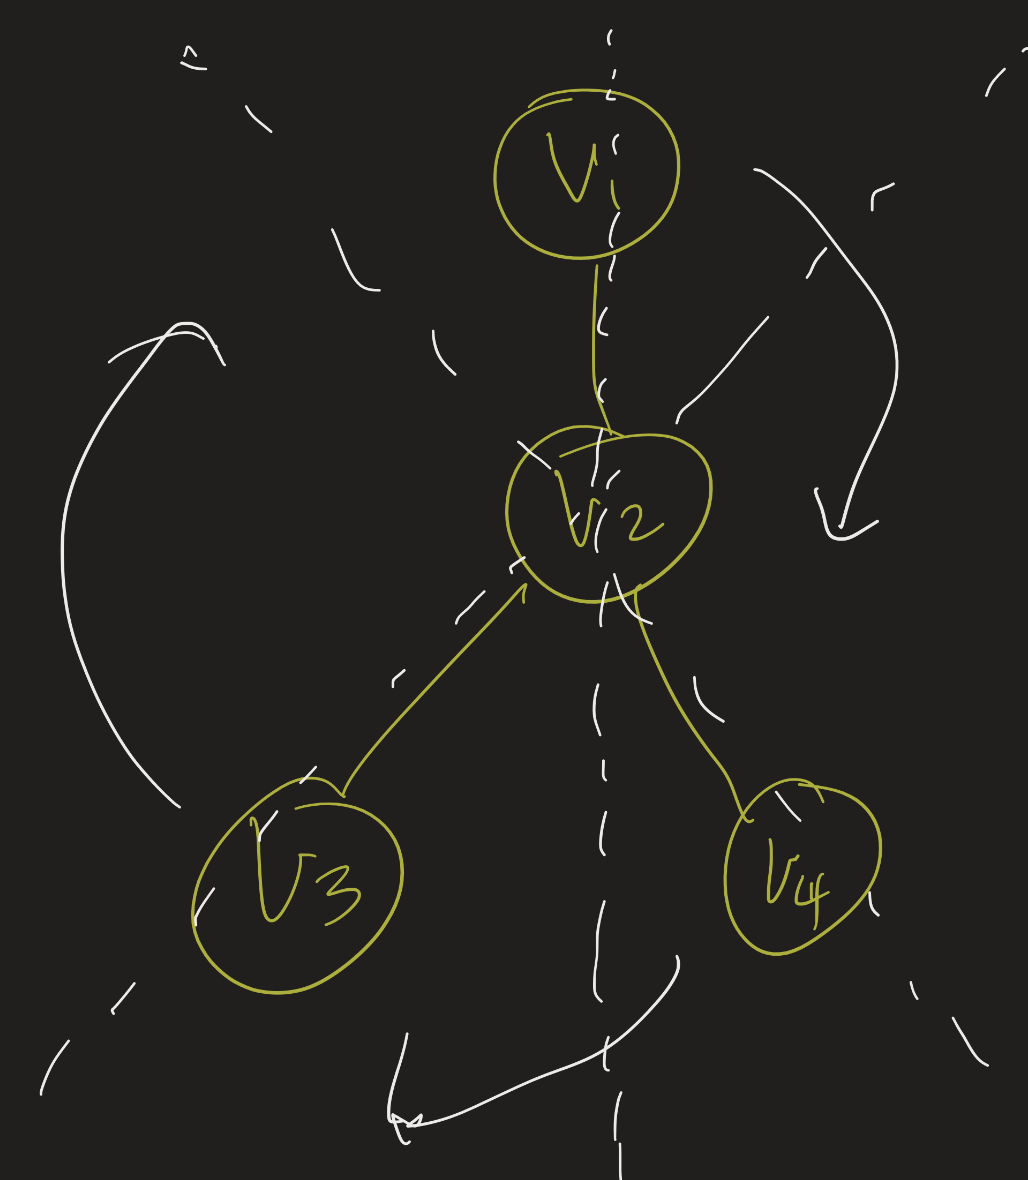 V1
V2
V3
V4